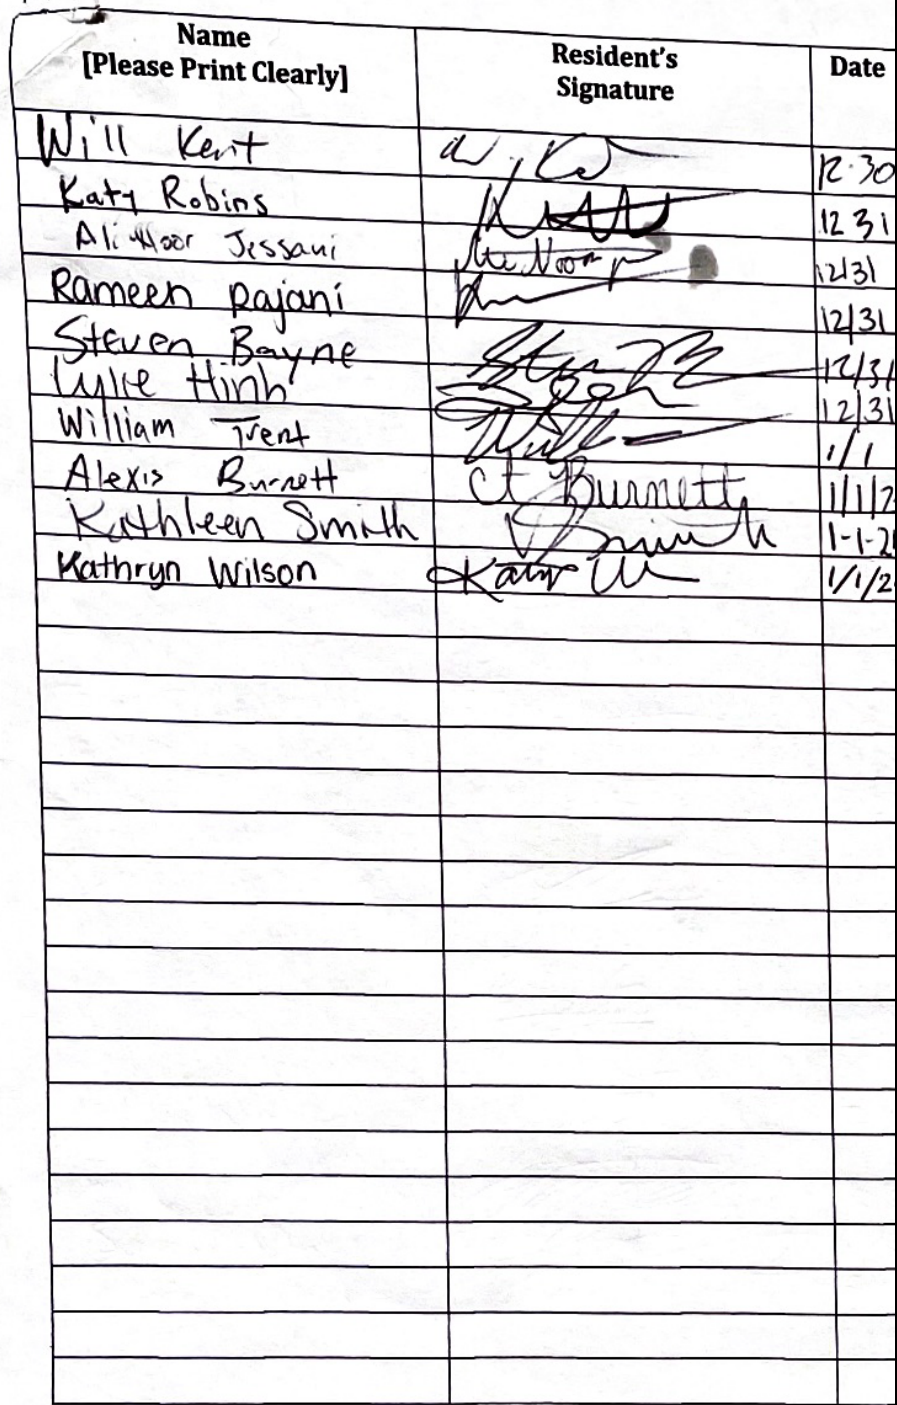 Name Resident's Date
[Please Print Clearly] Signature
Will Kent W. K 12.30
Katy Robins 12 31
Ali Noor Jessani Ali Noor 12/31
Rameen Rajani 12/31
Steven Bayne 12/31
Lylie Hinh 12/31
William Trent Will 1/1
Alexis Burnett A Burnett 1/1/2
Kathleen Smith Smith 1-1-2
Kathryn Wilson 1/1/2